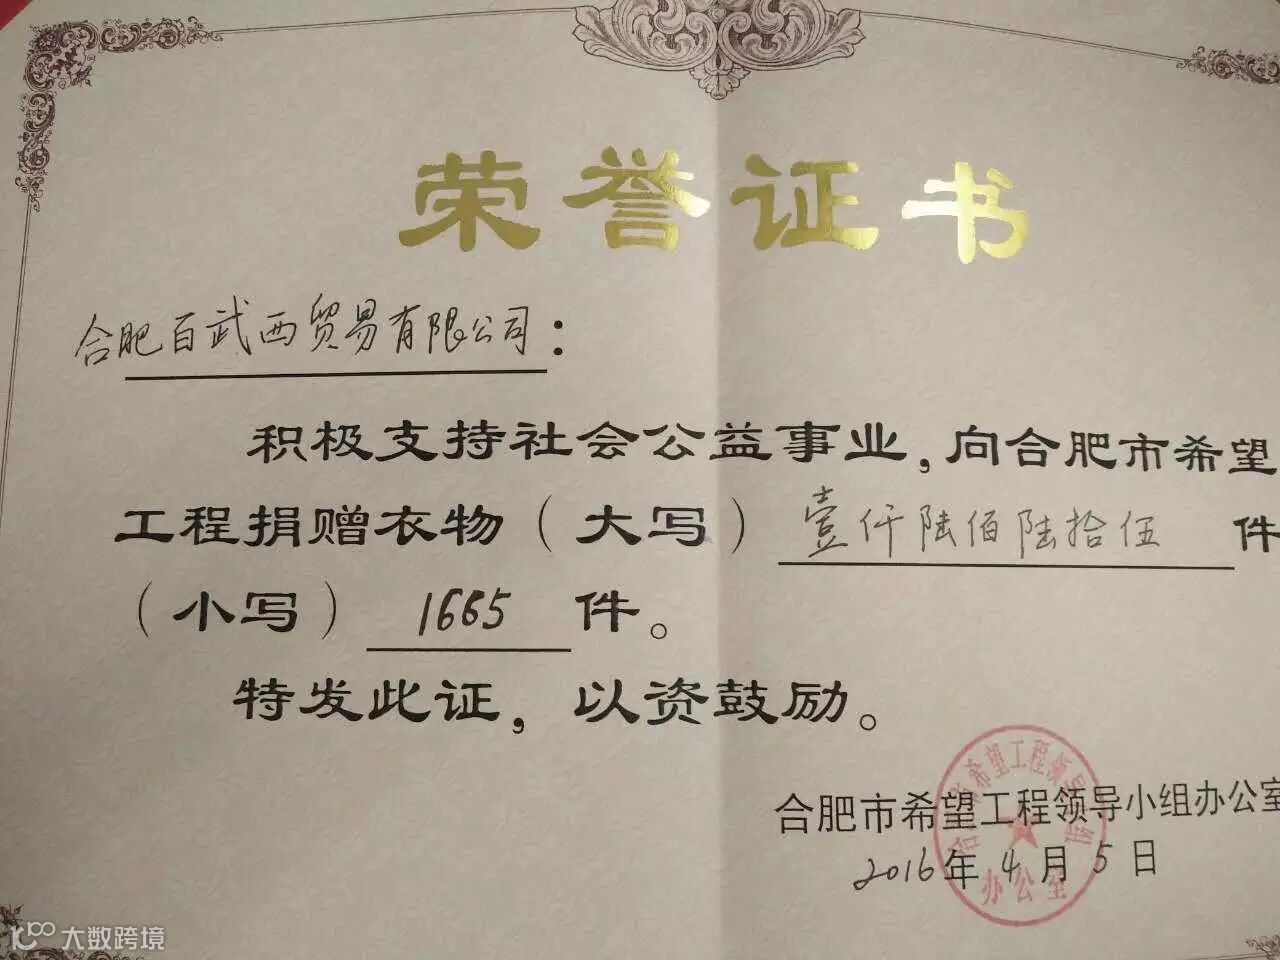 荣誉证书
合肥百武西贸易有限公司：
积极支持社会公益事业，向合肥市希望
工程捐赠衣物（大写）壹仟陆佰陆拾伍 件
（小写）1665 件。
特发此证，以资鼓励。
合肥市希望工程领导小组办公室
2016年4月5日
合肥市希望工程领导小组
办公室
大数跨境